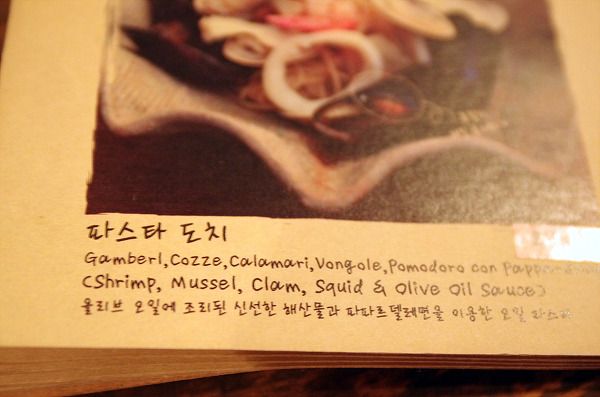 파스타 도치
Gamberl,Cozze,Calamari,Vongole,Pomodoro con
(Shrimp, Mussel, Clam, Squid & Olive Oil Sauce)
올리브 오일에 조리된 신선한 해산물과 파파르델레면을 이용한 오일 파스타